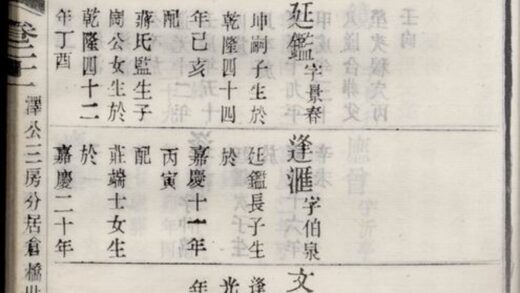 延鑑字景春
坤嗣子生於
乾隆四十四
年己亥
配
蔣氏監生子
公女生於
乾隆四十二
年丁酉
逢滙字伯泉
延鑑長子生
於
嘉慶十一年
丙寅
配
莊端士女生
於
嘉慶二十年
文
逢
光
年
卷
澤公三房分居倉橋世